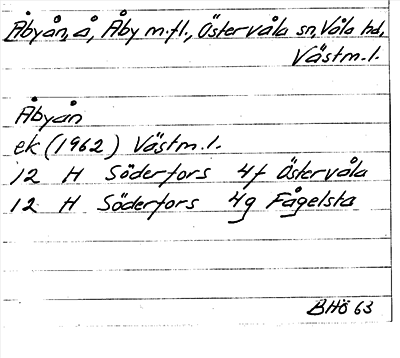 Åbyån, å, Åby m.fl., Östervåla sn, Våla hd,
Västm.l.
Åbyån
ek (1962) Västm.l.
12 H Söderfors 4f Östervåla
12 H Söderfors 4g Fågelsta
BHö 63